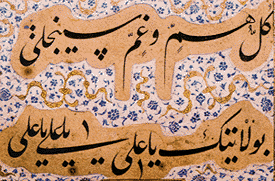 کل همّ و غمّ سینجلی
بولایتک یا علی یا علی یا علی